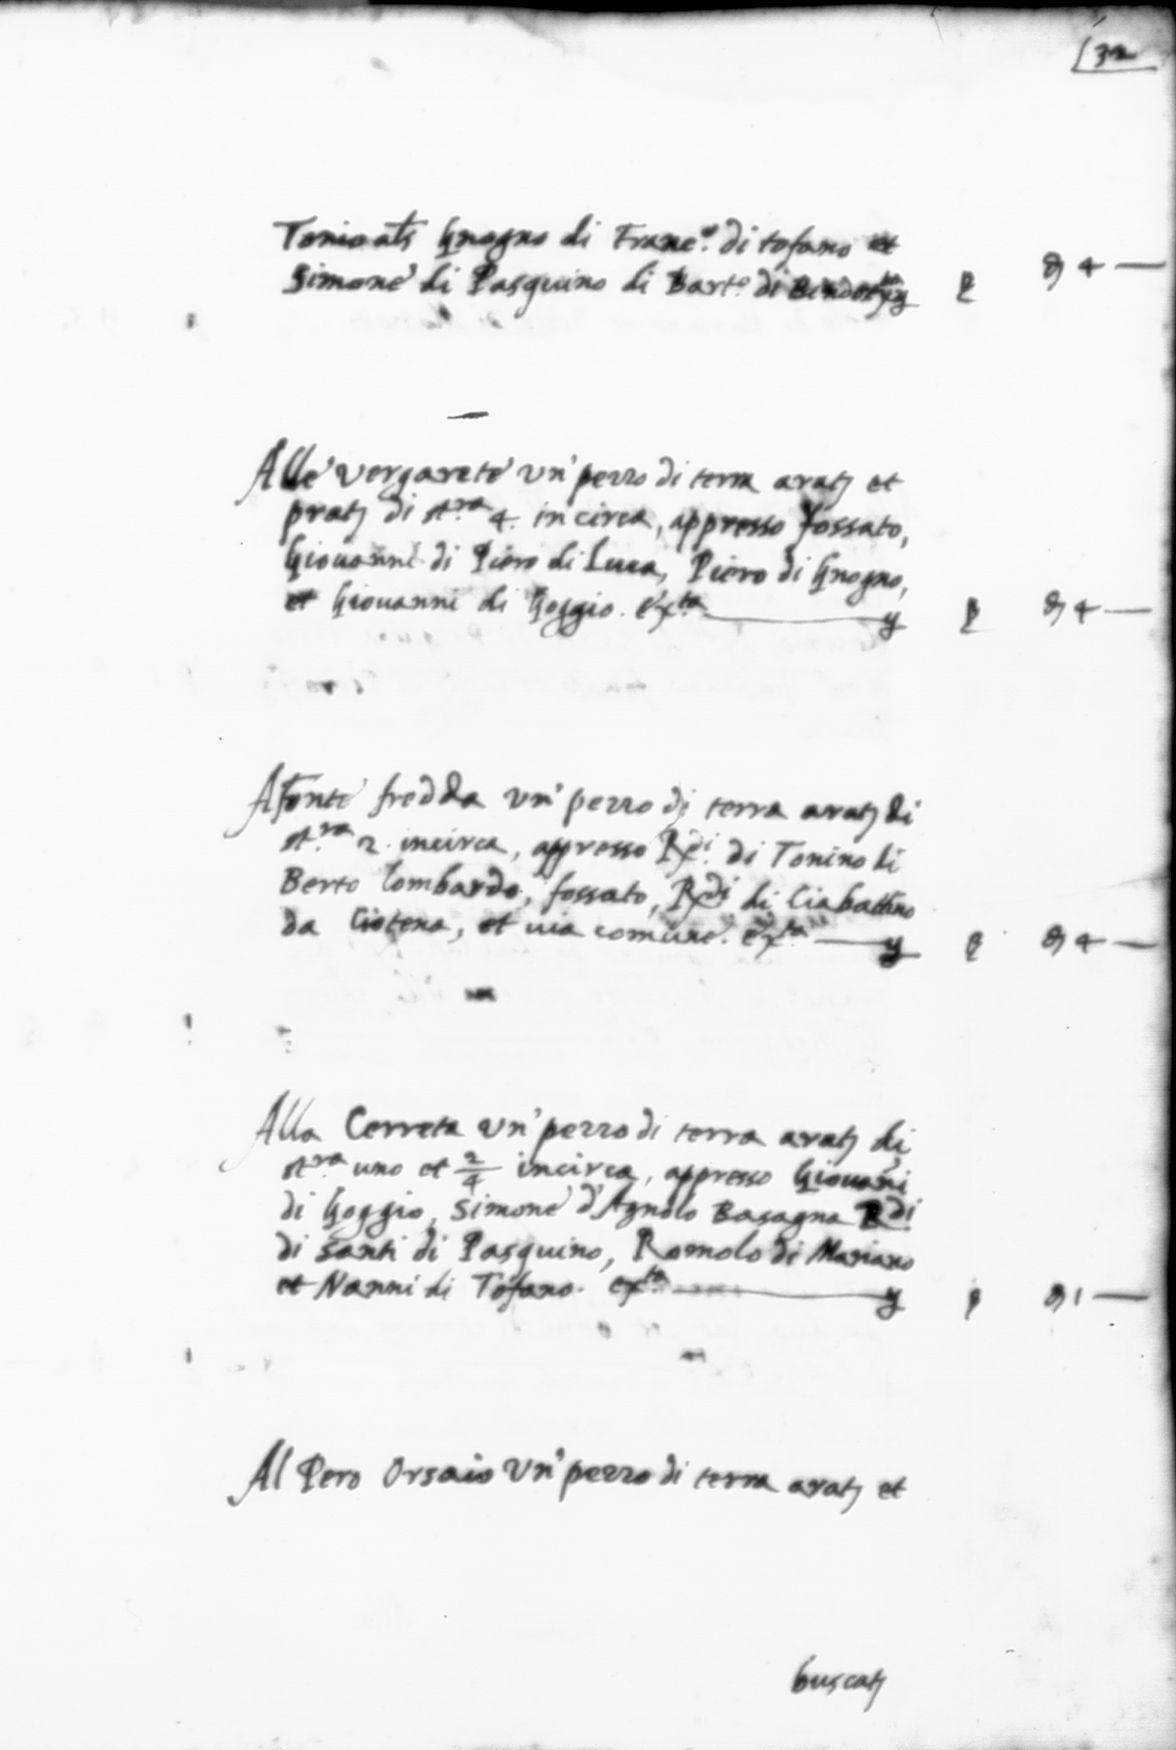 132
Tonio als Gnogno di Franc.º di tofano et
Simone di Pasquino di Bart.º di ∂ 4 —
Alle vergarete un' pezzo di terra arat. et
prat. di st.ra 4. in circa, appresso fossato,
Giouanni di Piero di Luca, Piero di Gnogno,
et Giouanni di Goggio. ex.ta — ∂ 4 —
A fonte fredda un' pezzo di terra arat. di
st.ra 2. incirca, appresso R.di di Tonino di
Berto lombardo, fossato, R.di di Ciabattino
da, et uia comune. ex.ta — ∂ 4 —
Alla Cerreta un' pezzo di terra arat. di
st.ra uno et 2/4 incirca, appresso Giouanni
di Goggio, Simone d'Agnolo Basagna R.di
di Santi di Pasquino, Romolo di Mariano
et Nanni di Tofano. ex.ta — ∂ 1 —
Al Pero Orsaio un' pezzo di terra arat. et
buscat.